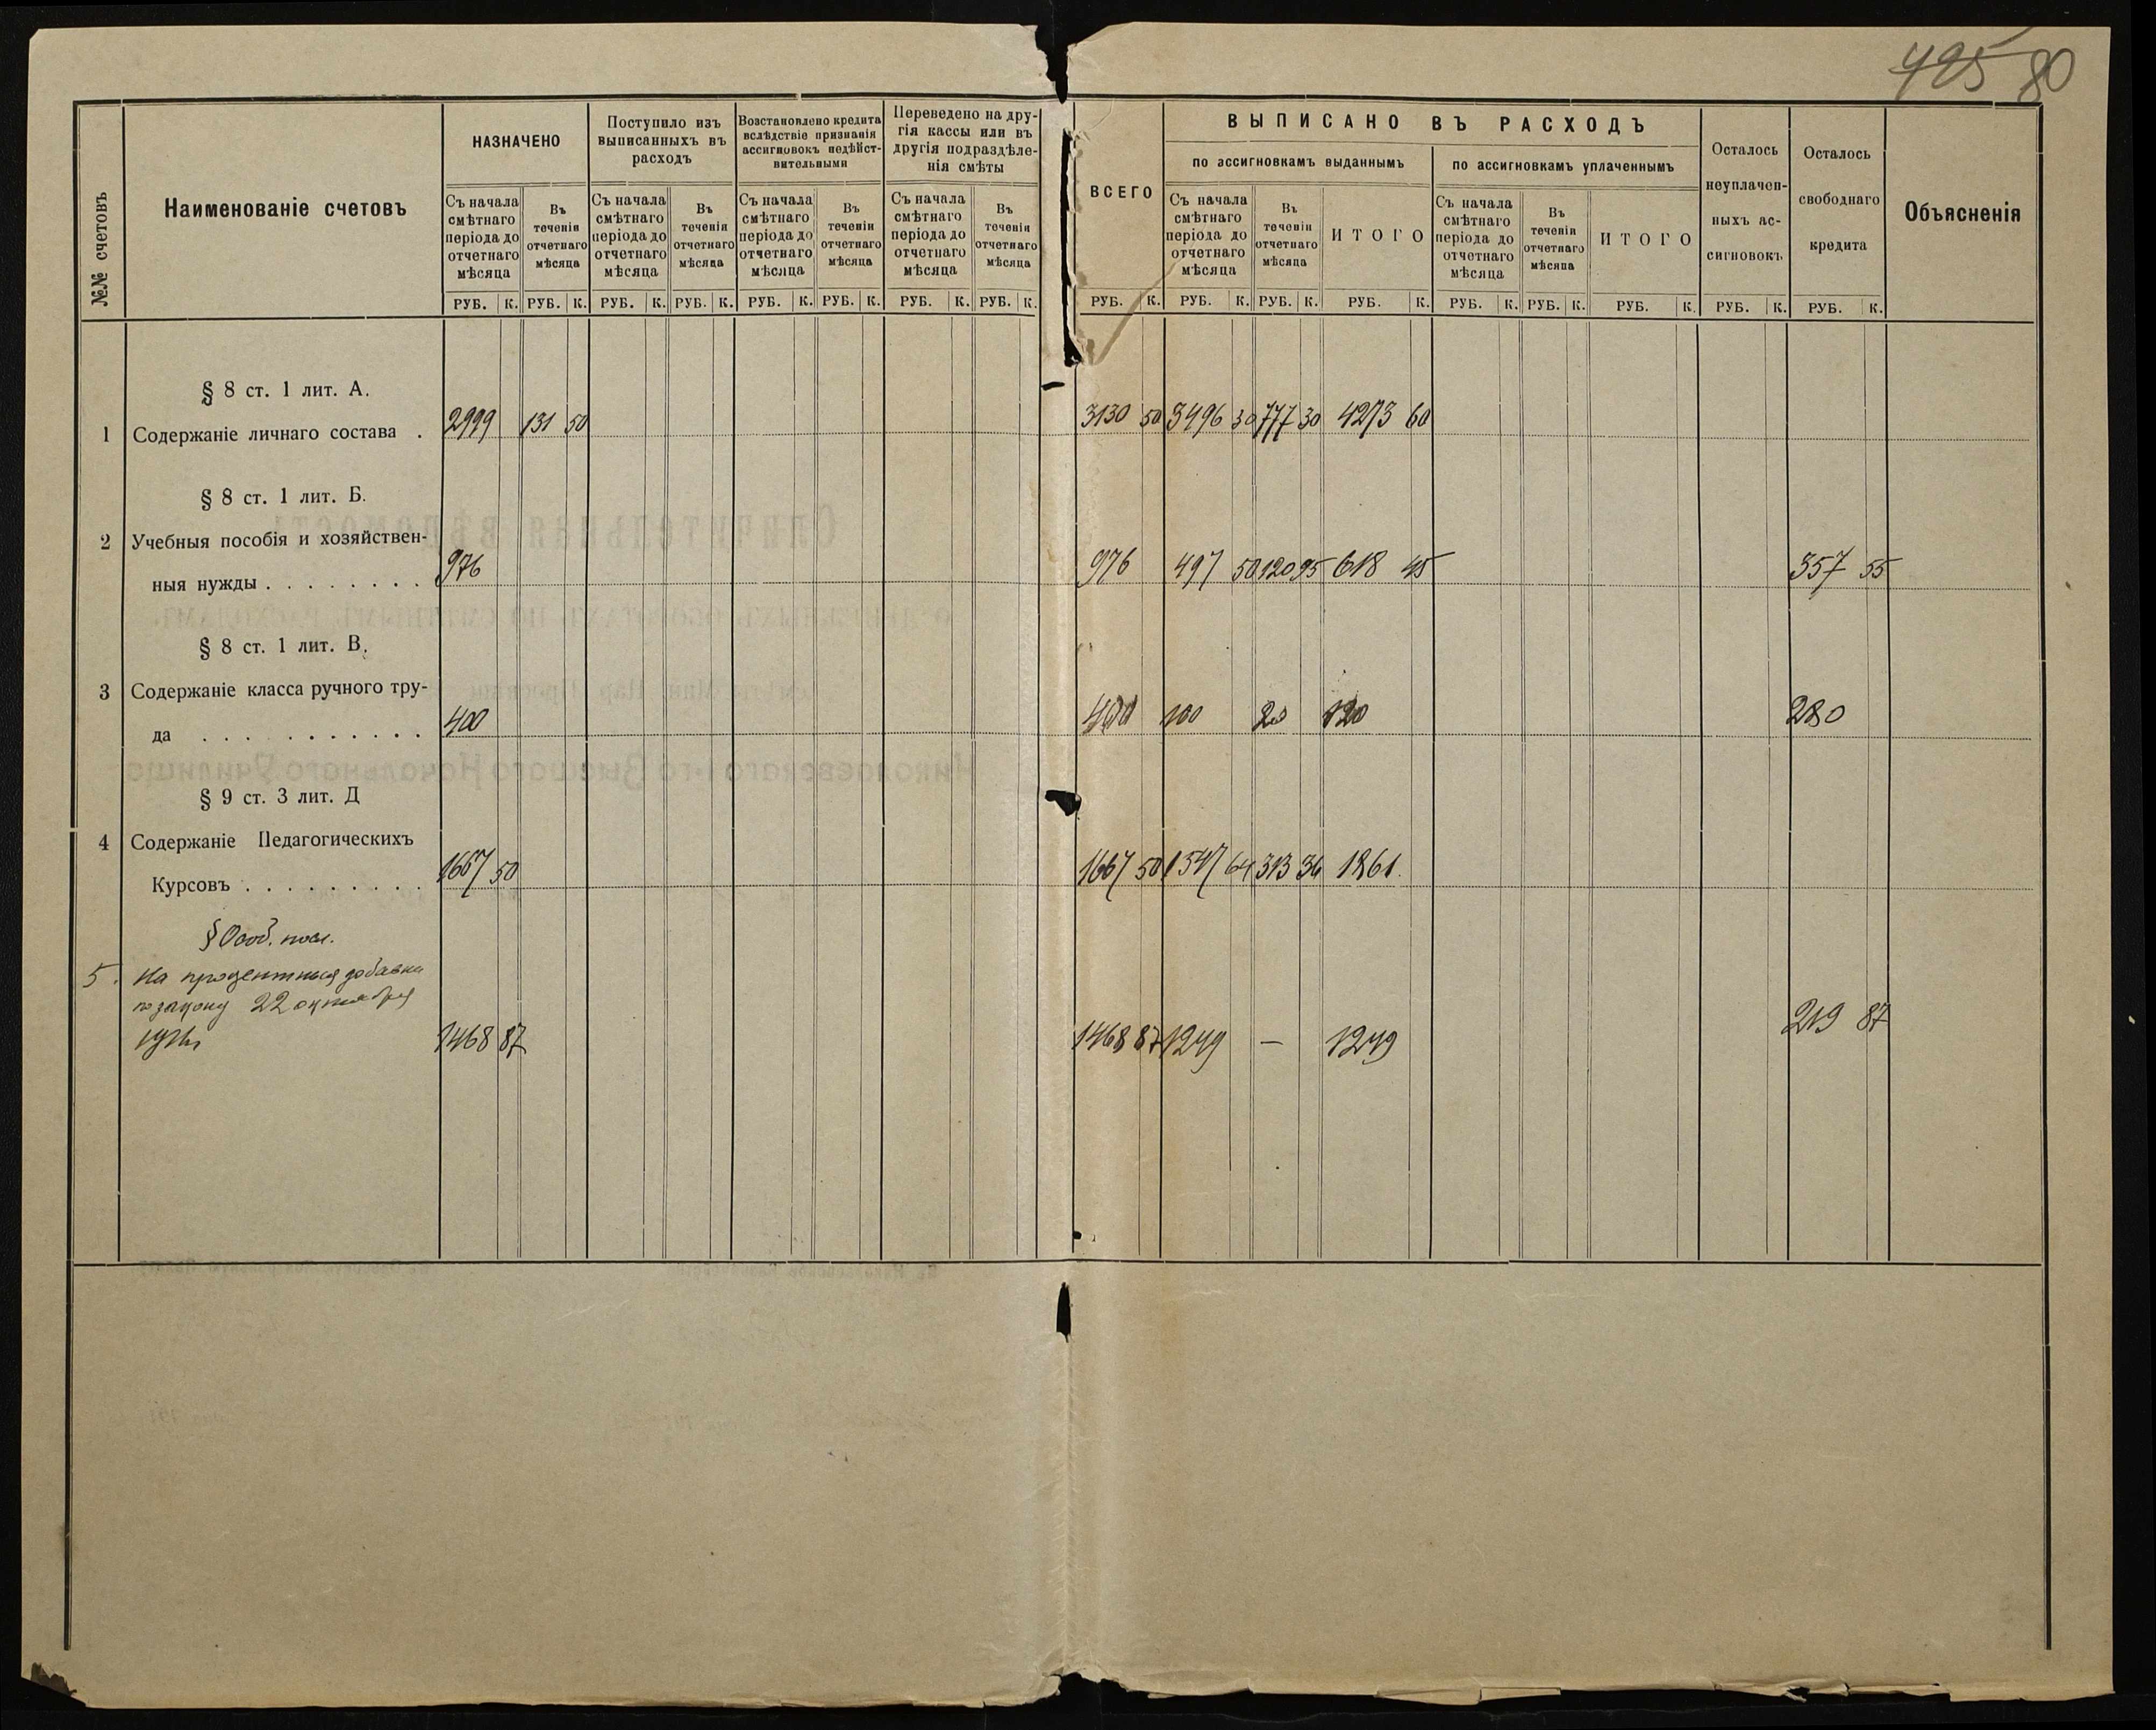 425 80
№№ счетовъ
Наименованіе счетовъ
НАЗНАЧЕНО
Поступило изъ
выписанныхъ въ
расходъ
Возстановлено кредита
вслѣдствіе признанія
ассигновокъ недѣйст-
вительными
Переведено на дру-
гія кассы или въ
другія подраздѣле-
нія смѣты
ВСЕГО
ВЫПИСАНО ВЪ РАСХОДЪ
по ассигновкамъ выданнымъ
по ассигновкамъ уплаченнымъ
Осталось
неуплачен-
ныхъ ас-
сигновокъ
Осталось
свободнаго
кредита
Объясненія
Съ начала
смѣтнаго
періода до
отчетнаго
мѣсяца
Въ
теченіи
отчетнаго
мѣсяца
Съ начала
смѣтнаго
періода до
отчетнаго
мѣсяца
Въ
теченіи
отчетнаго
мѣсяца
Съ начала
смѣтнаго
періода до
отчетнаго
мѣсяца
Въ
теченіи
отчетнаго
мѣсяца
Съ начала
смѣтнаго
періода до
отчетнаго
мѣсяца
Въ
теченіи
отчетнаго
мѣсяца
Съ начала
смѣтнаго
періода до
отчетнаго
мѣсяца
Въ
теченіи
отчетнаго
мѣсяца
ИТОГО
Съ начала
смѣтнаго
періода до
отчетнаго
мѣсяца
Въ
теченіи
отчетнаго
мѣсяца
ИТОГО
РУБ. К. РУБ. К. РУБ. К. РУБ. К. РУБ. К. РУБ. К. РУБ. К. РУБ. К. РУБ. К. РУБ. К. РУБ. К. РУБ. К. РУБ. К. РУБ. К. РУБ. К. РУБ. К. РУБ. К.
§ 8 ст. 1 лит. А.
1 Содержаніе личнаго состава . 2999 131 50 3130 50 3496 30 777 30 4273 60
§ 8 ст. 1 лит. Б.
2 Учебныя пособія и хозяйствен-
ныя нужды . . . . . . . . 976 976 497 50 120 95 618 45 357 55
§ 8 ст. 1 лит. В.
3 Содержаніе класса ручного тру-
да . . . . . . . . . . . 400 400 100 20 120 280
§ 9 ст. 3 лит. Д
4 Содержаніе Педагогическихъ
Курсовъ . . . . . . . . . 1667 50 1667 50 1547 64 313 36 1861.
§ Особ.
5. На процентныя добавки
по закону 22 октября
1468 87 1468 87 1249 — 1249 219 87